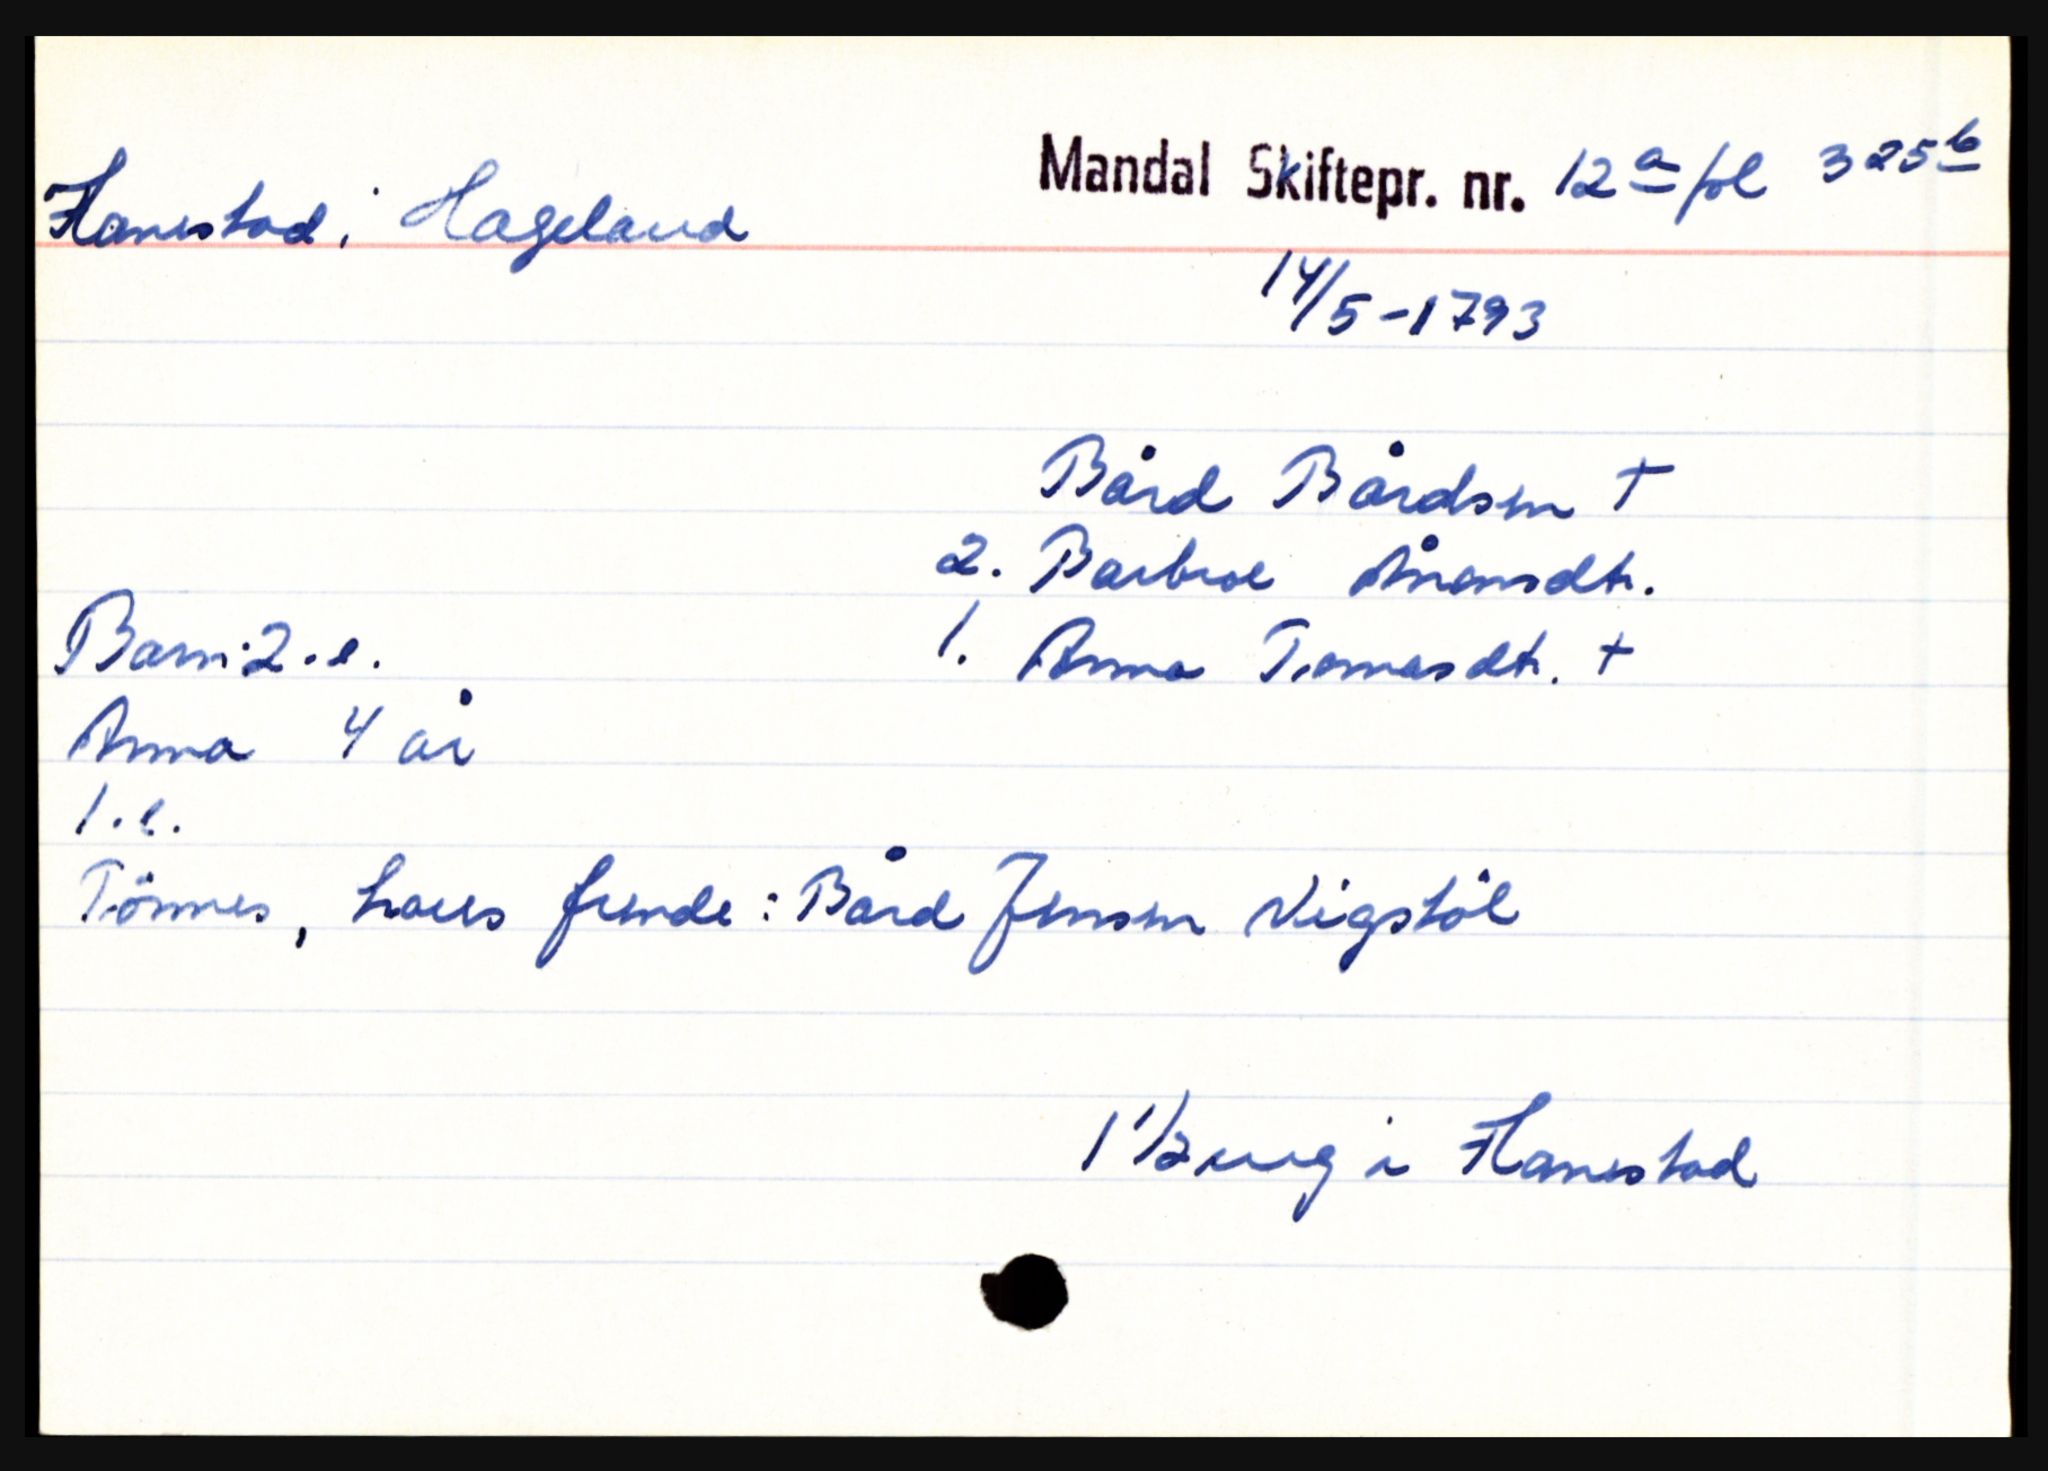 Hanestad i Hageland
Mandal Skiftepr. nr. 12a fol 325b
14/5-1793
Bård Bårdsen †
2. Barbroe Ånensdtr.
1. Anna Tomasdtr. †
Barn: 2. e.
Anna 4 år
1. e.
Tönnes, hans frende: Bård Jensen Vigstöl
1 1/2 eng i Hanestad